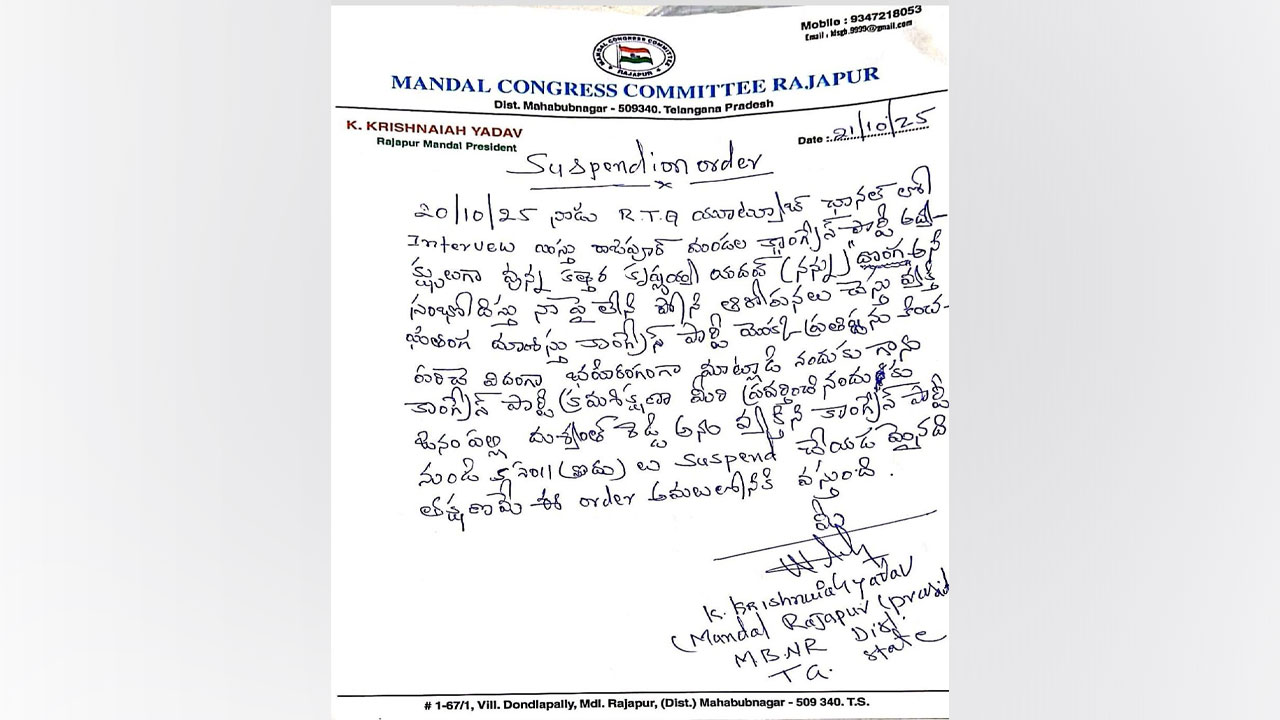 Mobile : 9347218053
MANDAL CONGRESS COMMITTEE
RAJAPUR
MANDAL CONGRESS COMMITTEE RAJAPUR
Dist. Mahabubnagar - 509340. Telangana Pradesh
K. KRISHNAIAH YADAV
Rajapur Mandal President
Date : 21/10/25
Suspendion order
20/10/25 నాడు R.T.G యూట్యూబ్ ఛానల్ లో
Intervew ఇస్తు రాజపూర్ మండల కాంగ్రేస్ పార్టీ అధ్య-
క్షులుగా వున్న కృష్ణయ్య యాదవ్ (నన్ను) "దొంగ అనే
సంభోదిస్తు నా పై లేని పోని ఆరోపనలు చేస్తు వ్యక్తి
కాంగ్రేస్ పార్టీ యొక్క ప్రతిష్టను కించ-
పరిచే విదంగా బహిరంగంగా మాట్లాడి నందుకు గాను
కాంగ్రేస్ పార్టీ క్రమశిక్షణా మీరి ప్రవర్తించినందుకు
దుశ్యంత్ రెడ్డి అను వ్యక్తిని కాంగ్రేస్ పార్టీ
నుండి suspend చేయడమైనది
తక్షణమే ఈ order అమలులోనికి వస్తుంది.
K. Krishnaiah yadav
(Mandal Rajapur
M.B.NR Dist.
T.G. state
# 1-67/1, Vill. Dondlapally, Mdl. Rajapur, (Dist.) Mahabubnagar - 509 340. T.S.